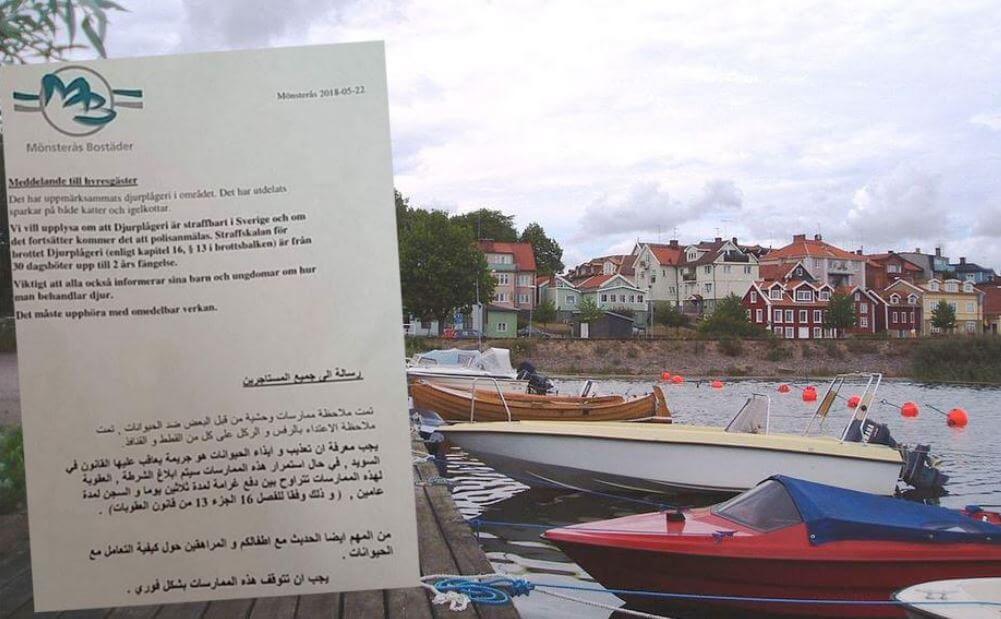 MAB
Mönsterås Bostäder
Mönsterås 2018-05-22
Meddelande till hyresgäster
Det har uppmärksammats djurplågeri i området. Det har utdelats
sparkar på både katter och igelkottar.
Vi vill upplysa om att Djurplågeri är straffbart i Sverige och om
det fortsätter kommer det att polisanmälas. Straffskalan för
brottet Djurplågeri (enligt kapitel 16, § 13 i brottsbalken) är från
30 dagsböter upp till 2 års fängelse.
Viktigt att alla också informerar sina barn och ungdomar om hur
man behandlar djur.
Det måste upphöra med omedelbar verkan.
رسالة الى جميع المستاجرين
تمت ملاحظة ممارسات وحشية من قبل البعض ضد الحيوانات , تمت
ملاحظة الإعتداء بالرفس و الركل على كل من القطط و القنافذ .
يجب معرفة ان تعذيب و ايذاء الحيوانات هو جريمة يعاقب عليها القانون في
السويد , في حال استمرار هذه الممارسات سيتم ابلاغ الشرطة , العقوبة
لهذه الممارسات تتراوح بين دفع غرامة لمدة ثلاثين يوما و السجن لمدة
عامين , ( و ذلك وفقا للفصل 16 الجزء 13 من قانون العقوبات) .
من المهم ايضا الحديث مع اطفالكم و المراهقين حول كيفية التعامل مع
الحيوانات .
يجب ان تتوقف هذه الممارسات بشكل فوري .